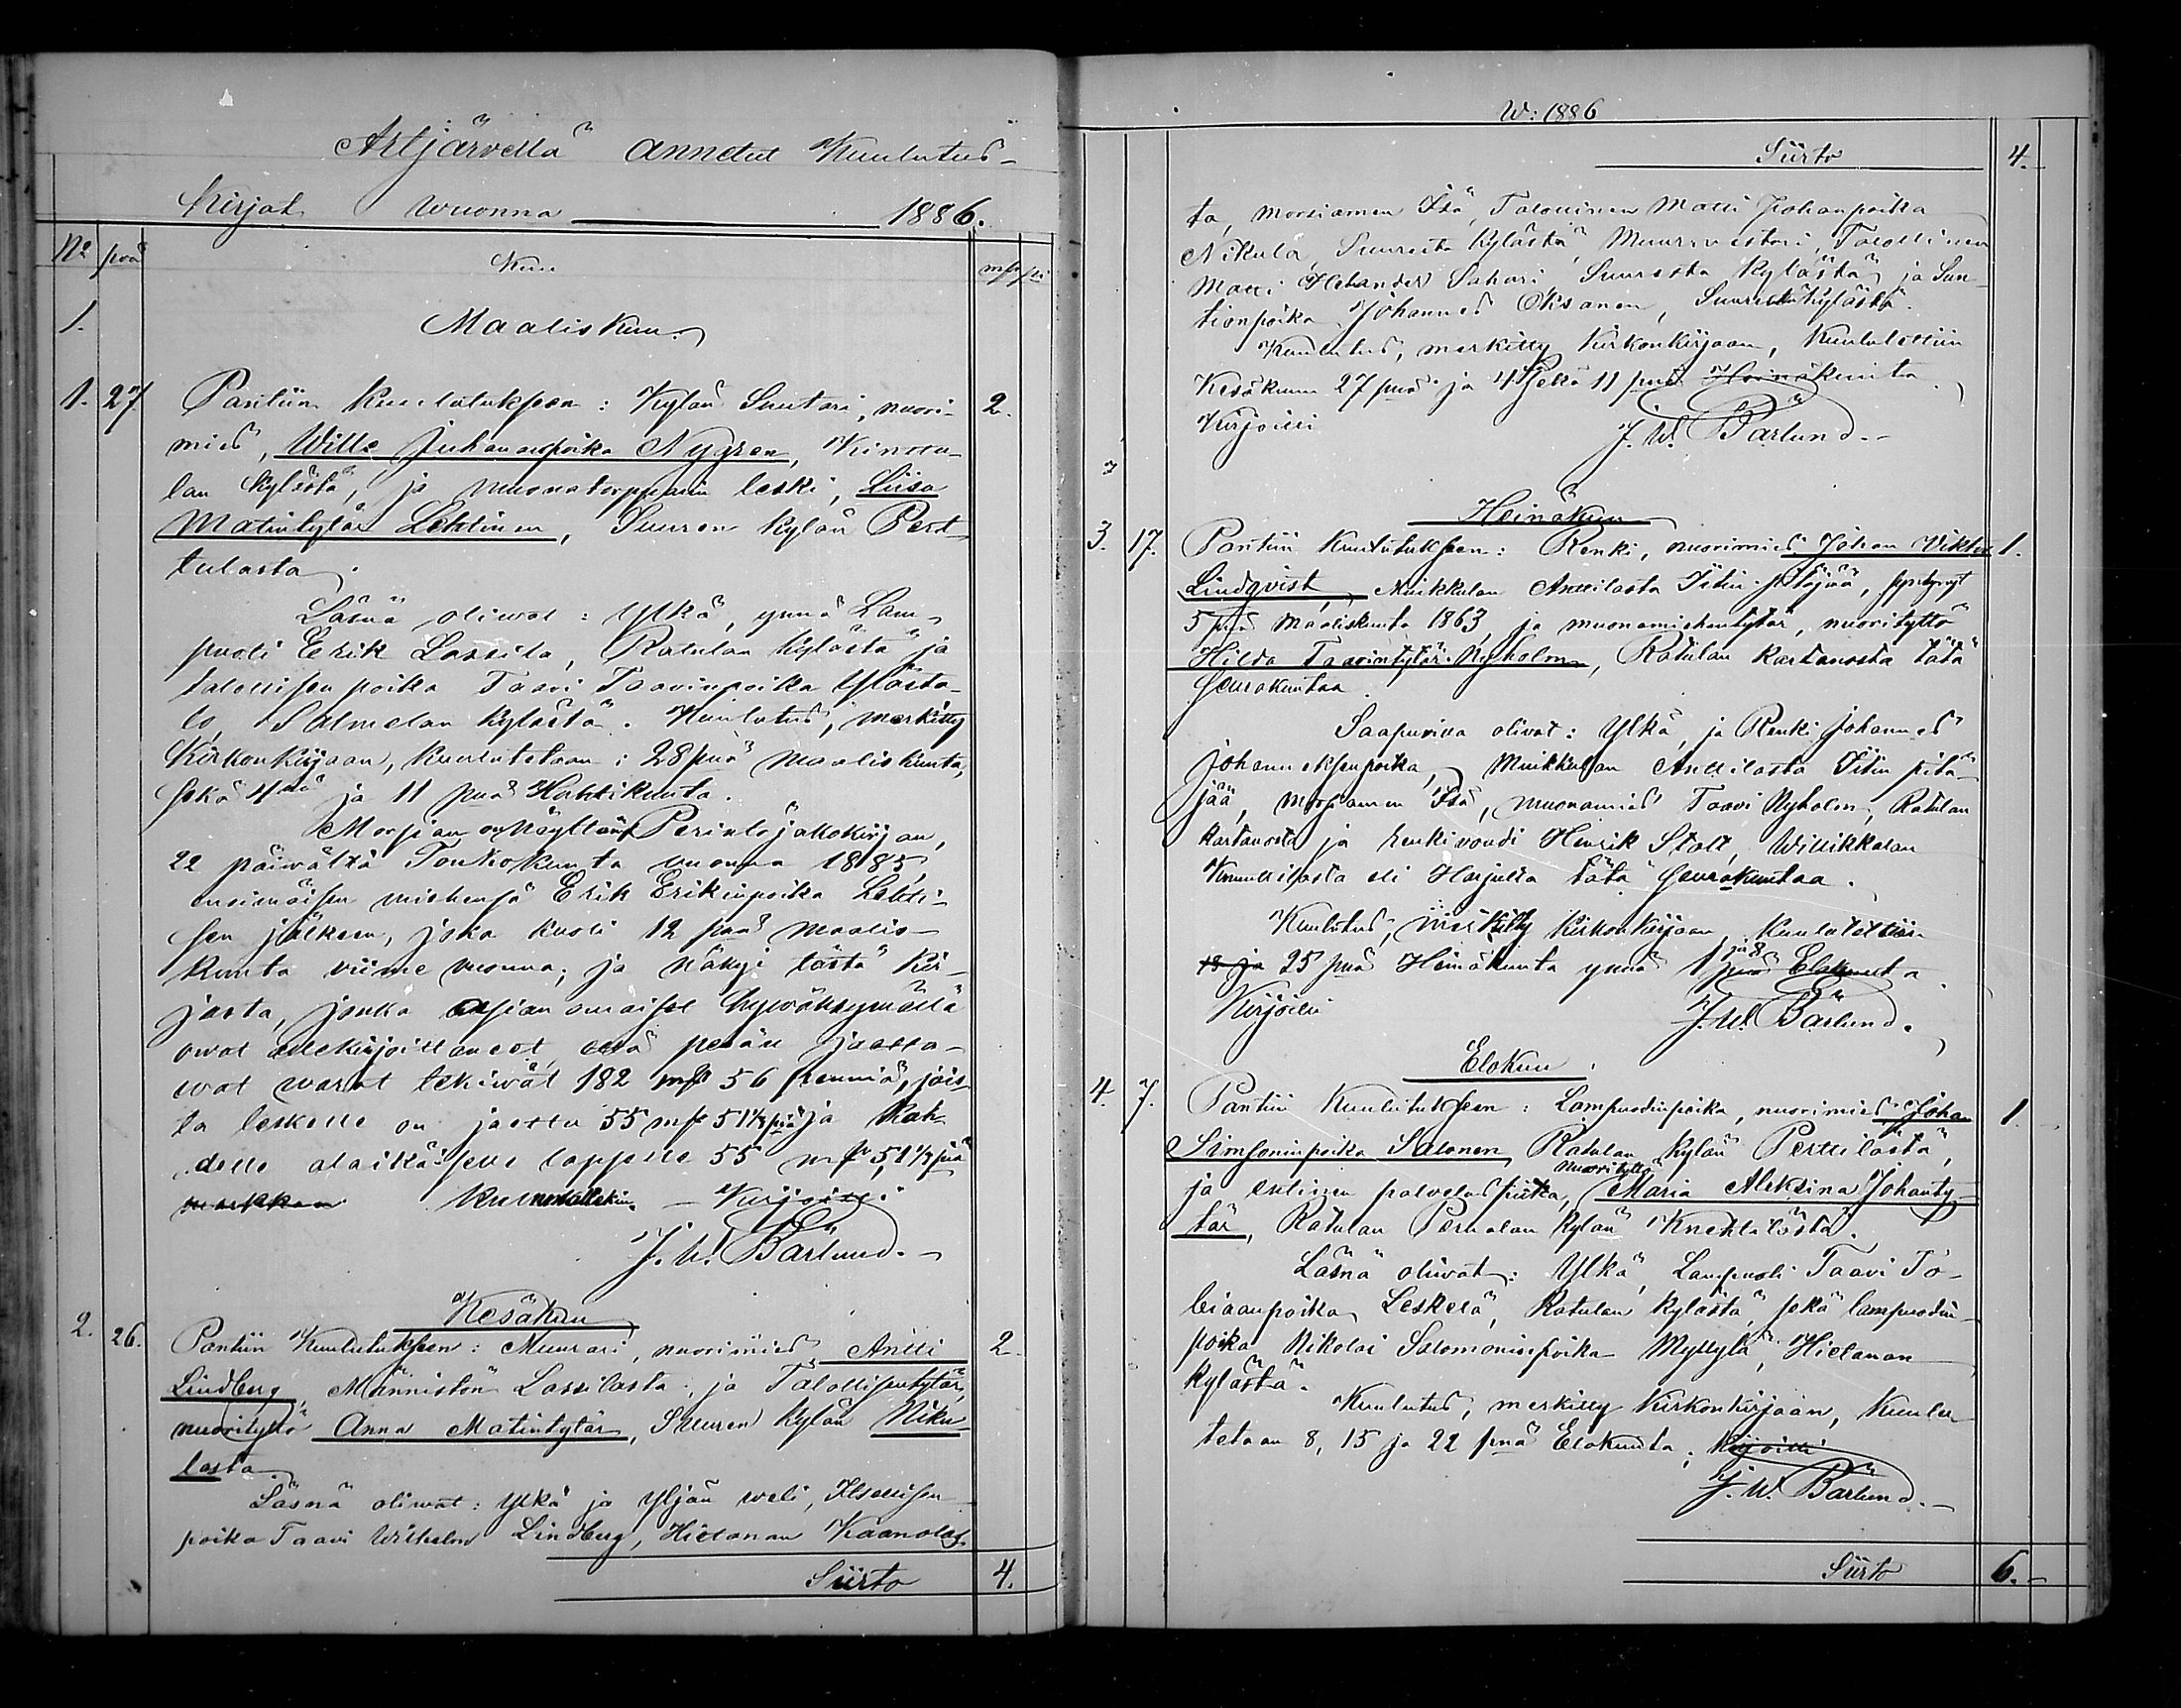 Artjärvellä annetut Kuulutus-
Kirjat wuonna 1886.
No pvä Kuu mk pii
1. Maaliskuu.
1. 27 Pantiin Kuulutukseen: Kylän Suutari, nuori- 2.
mies, Wille Juhananpoika Nygren, Kinttu-
lan Kylästä, ja muonatorpparin leski, Liisa
Matintytär Lehtinen, Suuren Kylän Pert-
tulasta.
Läsnä oliwat: Ylkä, ynnä Lam-
puoti Eerik Lassila, Ratulan kylästä ja
talollisen poika Taavi Taavinpoika Yläta-
lo, Salmelan kylästä. Kuulutus, merkitty
Kirkonkirjaan, kuulutetaan: 28 pnä Maaliskuuta,
sekä 4nä ja 11 pnä Huhtikuuta.
Morsian on näyttänyt Perintöjakokirjan,
22 päiwältä Toukokuuta vuonna 1885,
ensimäisen miehensä Erik Erikinpoika Lehti-
sen jälkeen, joka kuoli 12 pnä Maalis-
kuuta viime vuonna; ja näkyi tästä kir-
jasta, jonka asianomaiset hywäksymällä
owat allekirjoittaneet, että pesän jaetta-
wat warat tekiwät 182 mk 56 penniä, jois-
ta leskelle on jaettu 55 mk 51 1/3 piä ja kah-
delle alaikäiselle lapselle 55 mk 51 1/3 piä
markkaa kummallekin. - Kirjoitti
J. W. Bärlund. -
Kesäkuu
2. 26. Pantiin Kuulutukseen: Muurari, nuorimies Antti 2
Lindberg, Männistön Lassilasta, ja Talollisentytär,
nuorityttö Anna Matintytär, Suuren kylän Niku-
lasta
Läsnä oliwat: Ylkä ja Yljän weli, Itsellisen
poika Taavi Wilhelm Lindberg, Hietanan Kaanolas-
Siirto 4.
W: 1886
Siirto 4. -
ta, morsiamen Isä, Talollinen Matti Johanpoika
Nikula, Suuresta kylästä, Muurimestari, Talollinen
Matti Helander Sahari Suuresta kylästä, ja Sun-
tionpoika Johannes Oksanen, Suurestakylästä.
Kuulutus, merkitty Kirkonkirjaan, Kuulutettiin
Kesäkuun 27 pnä ja 4 sekä 11 pnä Heinäkuuta.
Kirjoitti J. W. Bärlund. -
Heinäkuu
3. 17. Pantiin Kuulutukseen: Renki, nuorimies Johan Viktor 1.
Lindqvist, Muikkulan Anttilasta Iitin pitäjää, syntynyt
5 pnä Maaliskuuta 1863, ja muonamiehentytär, nuorityttö
Hilda Taavintytär Nyholm, Ratulan kartanosta tätä
Seurakuntaa.
Saapuvina olivat: Ylkä, ja Renki Johannes
Johanneksenpoika, Muikkulan Anttilasta Iitin pitä-
jää, morsiamen Isä, muonamies Taavi Nyholm, Ratulan
kartanosta ja henkivouti Henrik Stolt, Willikkalan
Knuutilasta eli Harjulta tätä seurakuntaa.
Kuulutus, merkitty Kirkonkirjaan, Kuulutettiin
18 ja 25 pnä Heinäkuuta ynnä 1 ja 8 pnä Elokuuta.
Kirjoitti J. W. Bärlund.
Elokuu.
4. 7. Pantiin Kuulutukseen: Lampuodinpoika, nuorimies Johan 1. -
Simsoninpoika Salonen, Ratulan kylän Perttilästä,
ja entinen palveluspiika, nuorityttö Maria Aleksina Johanty-
tär, Ratulan Pernalan kylän Knehtilästä.
Läsnä oliwat: Ylkä, Lampuoti Taavi To-
biaanpoika Leskelä, Ratulan kylästä, sekä lampuodin-
poika Nikolai Salomoninpoika Myllylä, Hietanan
kylästä.
Kuulutus, merkitty Kirkonkirjaan, Kuulu-
tetaan 8, 15 ja 22 pnä Elokuuta; Kirjoitti
J. W. Bärlund. -
Siirto 6. -